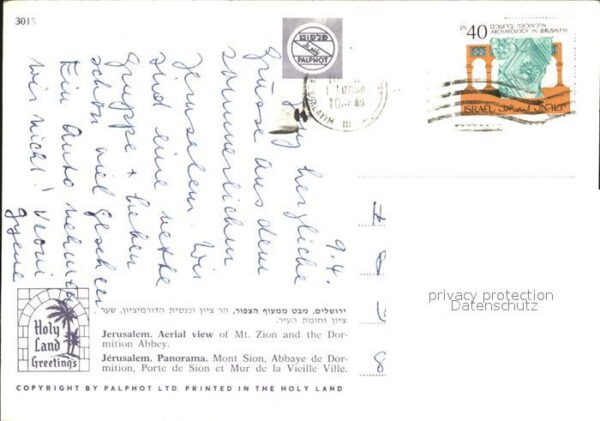 3015
פלפוט
PALPHOT
40
ארכיאולוגיה בירושלים
ARCHAEOLOGY IN JERUSALEM
ISRAEL إسرائيل ישראל
9.4.
herzliche
Grüsse aus dem
sommerlichen
Jerusalem. Wir
sind eine nette
Gruppe + haben
schon viel gesehen
Ein Auto nehmen
wir nicht! Vroni
8
privacy protection
Datenschutz
Holy
Land
Greetings
ירושלים, מבט ממעוף הצפור, הר ציון וכנסית הדורמיציון, שער
ציון וחומת העיר.
Jerusalem. Aerial view of Mt. Zion and the Dor-
mition Abbey.
Jérusalem. Panorama. Mont Sion, Abbaye de Dor-
mition, Porte de Sion et Mur de la Vieille Ville.
COPYRIGHT BY PALPHOT LTD. PRINTED IN THE HOLY LAND